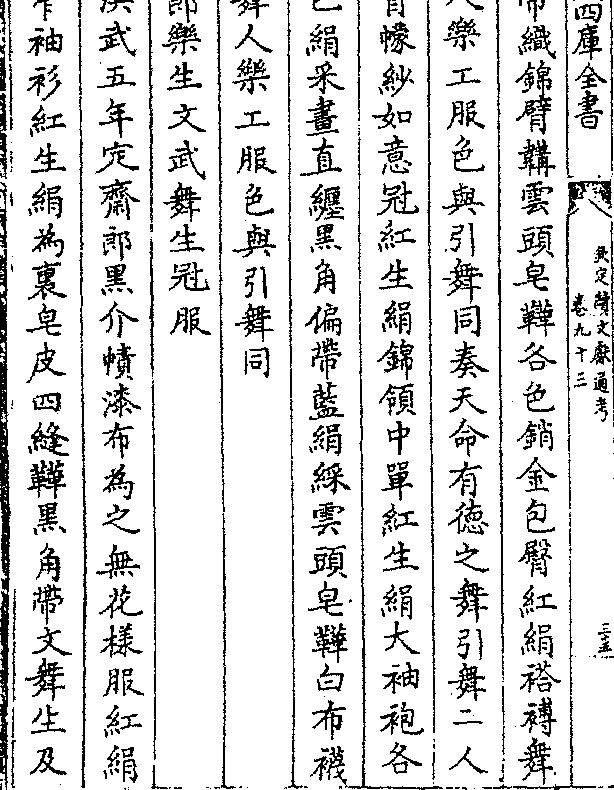 四庫全書
欽定續文獻通考
卷九十三
三五
帶織錦臂韝雲頭皂鞾各色銷金包臀紅絹褡褳舞
人樂工服色與引舞同奏天命有德之舞引舞二人
青幪紗如意冠紅生絹錦領中單紅生絹大袖袍各
色絹采畫直纏黑角偏帶藍絹綵雲頭皂鞾白布襪
舞人樂工服色與引舞同
郎樂生文武舞生冠服
洪武五年定齋郎黑介幘漆布為之無花樣服紅絹
窄袖衫紅生絹為裏皂皮四縫鞾黑角帶文舞生及